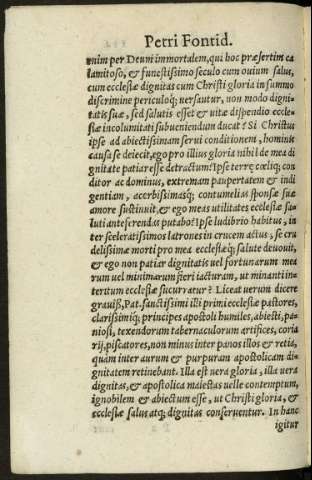 Petri Fontid.
enim per Deum immortalem, qui hoc præsertim ca
lamitoso, & funestissimo seculo cum ouium salus,
cum ecclesiæ dignitas cum Christi gloria in summo
discrimine periculoq; uersatur, non modo digni-
tati suæ, sed saluti esset & uitæ dispendio eccle-
siæ incolumitati subueniendum ducat? Si Christus
ipse ad abiectissimam serui conditionem, hominis
causa se deiecit, ego pro illius gloria nihil de mea di
gnitate patiar esse detractum? Ipse terræ cœliq; con
ditor ac dominus, extremam paupertatem & indi
gentiam, acerbissimasq; contumelias sponsæ suæ
amore sustinuit, & ego meas utilitates ecclesiæ sa-
luti anteferendas putabo? Ipse ludibrio habitus, in
ter sceleratissimos latrones in crucem actus, se cru
delissimæ morti pro mea ecclesiæq; salute deuouit,
& ego non patiar dignitatis uel fortunarum mea
rum uel minimarum fieri iacturam, ut minanti in-
teritum ecclesiæ sucurratur? Liceat uerum dicere
grauiß. Pat. sanctissimi illi primi ecclesiæ pastores,
clarissimiq; principes apostoli humiles, abiecti, pa-
niosi, texendorum tabernaculorum artifices, coria
rij, piscatores, non minus inter panos illos & retia,
quàm inter aurum & purpuram apostolicam di-
gnitatem retinebant. Illa est uera gloria, illa uera
dignitas, & apostolica maiestas uelle contemptum,
ignobilem & abiectum esse, ut Christi gloria, &
ecclesiæ salus atq; dignitas conseruentur. In hanc
igitur